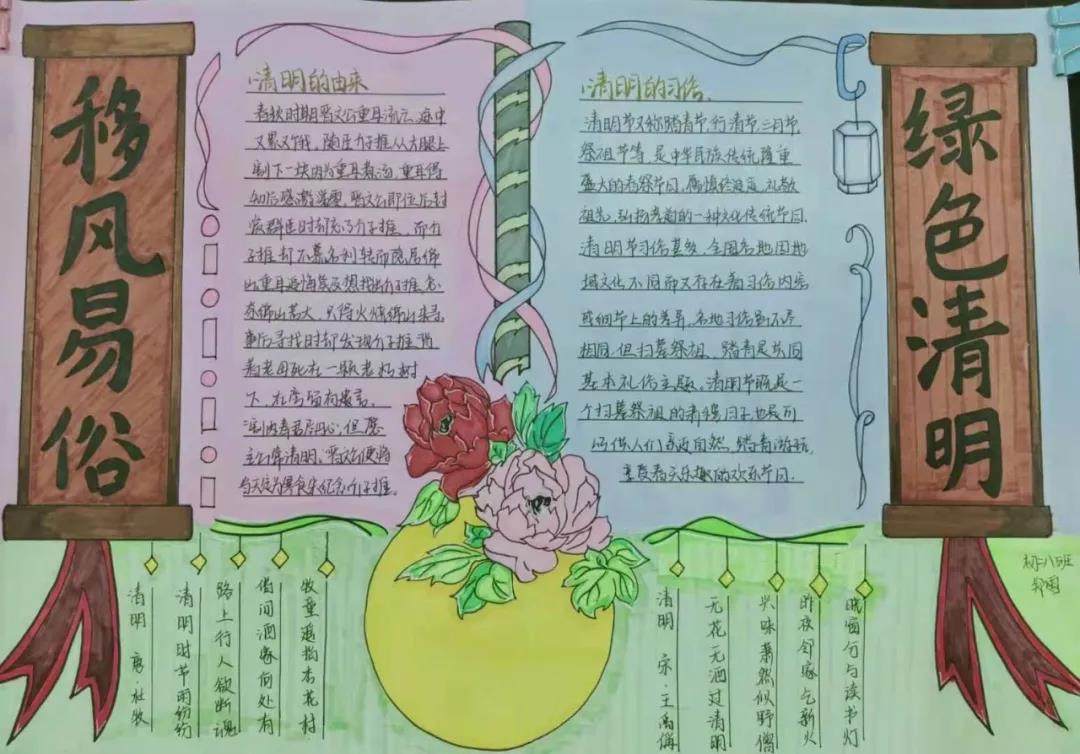 移风易俗
清明的由来
春秋时期晋文公重耳流亡途中
又累又饿，随臣介子推从大腿上
割下一块肉为重耳煮汤，重耳得
知后感激涕零，晋文公即位后封
赏群臣时却忘了介子推，而介
子推却不慕名利转而隐居绵
山重耳追悔莫及想找出介子推，
奈绵山若大，只得火烧绵山来寻
事后寻找时却发现介子推背
着老母死在一颗老朽树
下，在旁留有遗言。
割肉奉君尽丹心，但愿
主公常清明，晋文公便将
当天定为寒食来纪念介子推。
清明的习俗
清明节又称踏青节，行清节，三月节
祭祖节等，是中华民族传统隆重
盛大的春祭节日，属慎终追远、礼敬
祖先，弘扬孝道的一种文化传统节日，
清明节习俗甚多，全国各地因地
域文化不同而又存在着习俗内容
或细节上的差异，各地习俗虽不尽
相同，但扫墓祭祖、踏青是共同
基本礼俗主题，清明节既是一
个扫墓祭祖的肃穆日子，也是
人们亲近自然、踏青游玩，
享受春天乐趣的欢乐节日.
绿色清明
清明 唐·杜牧
清明时节雨纷纷
路上行人欲断魂
借问酒家何处有
牧童遥指杏花村
清明 宋·王禹偁
无花无酒过清明
兴味萧然似野僧
昨夜邻家乞新火
晓窗分与读书灯